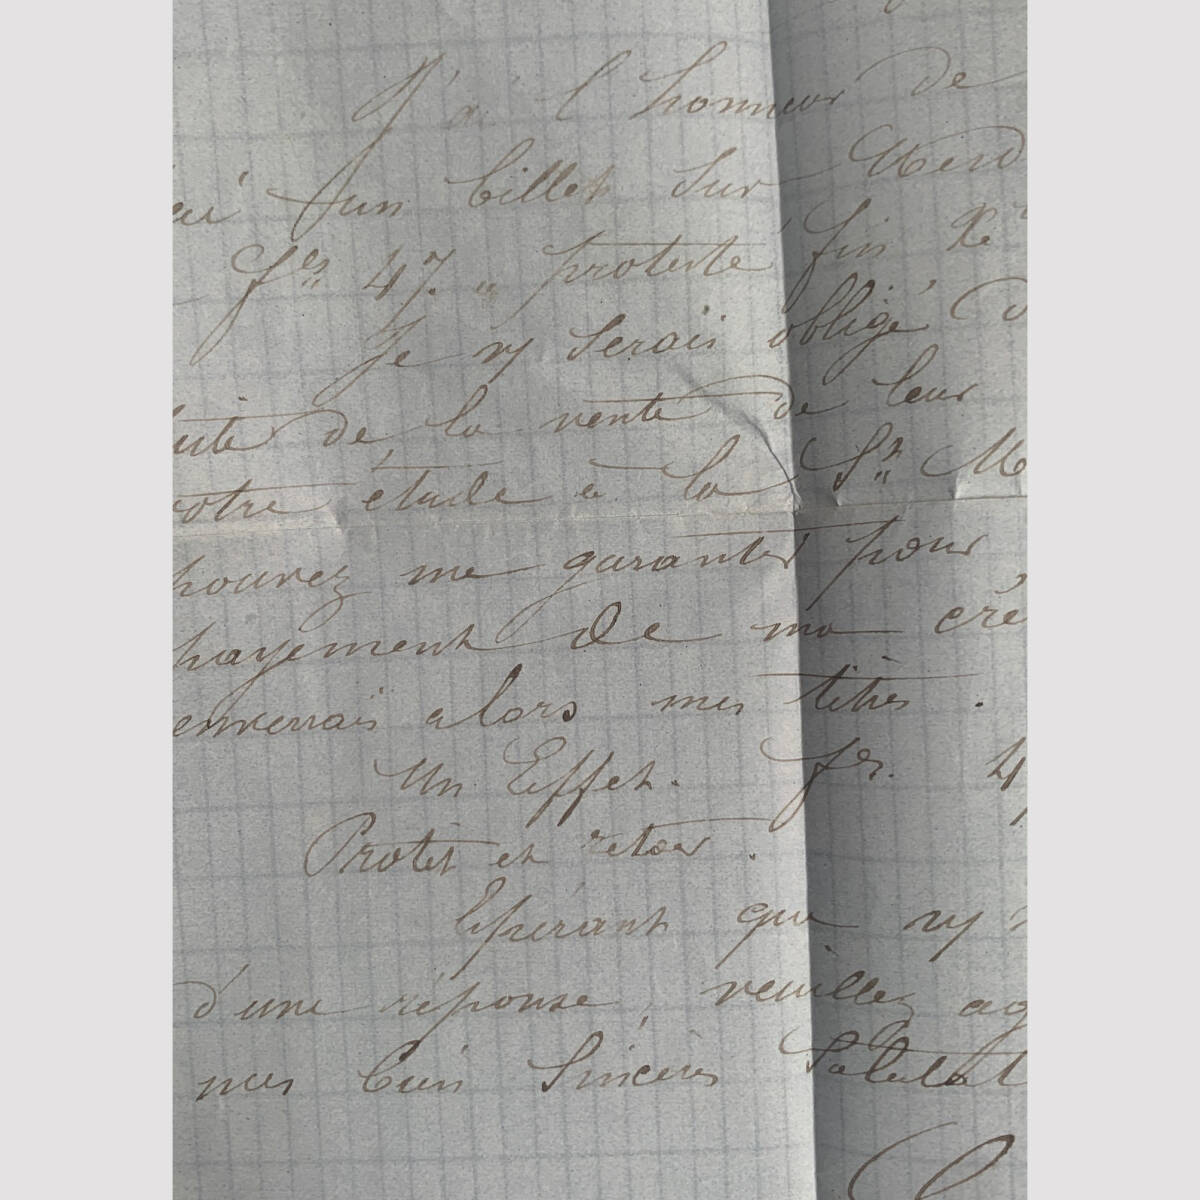 J'ai l'honneur de
un billet sur
fcs 47. " protesté fin Xe
Je vs serais obligé d
uite de la vente de leur
votre étude à la St M
pouvez me garantir pour
payement de ma cré
enverrais alors mes titres.
Un Effet. fr. 4
Protêt et retour.
Espérant que vs
d'une réponse, veuillez ag
mes bien sincères Salutat